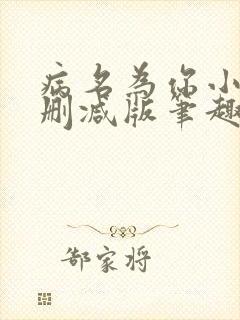 病名为你小
删减版笔趣
郜家将